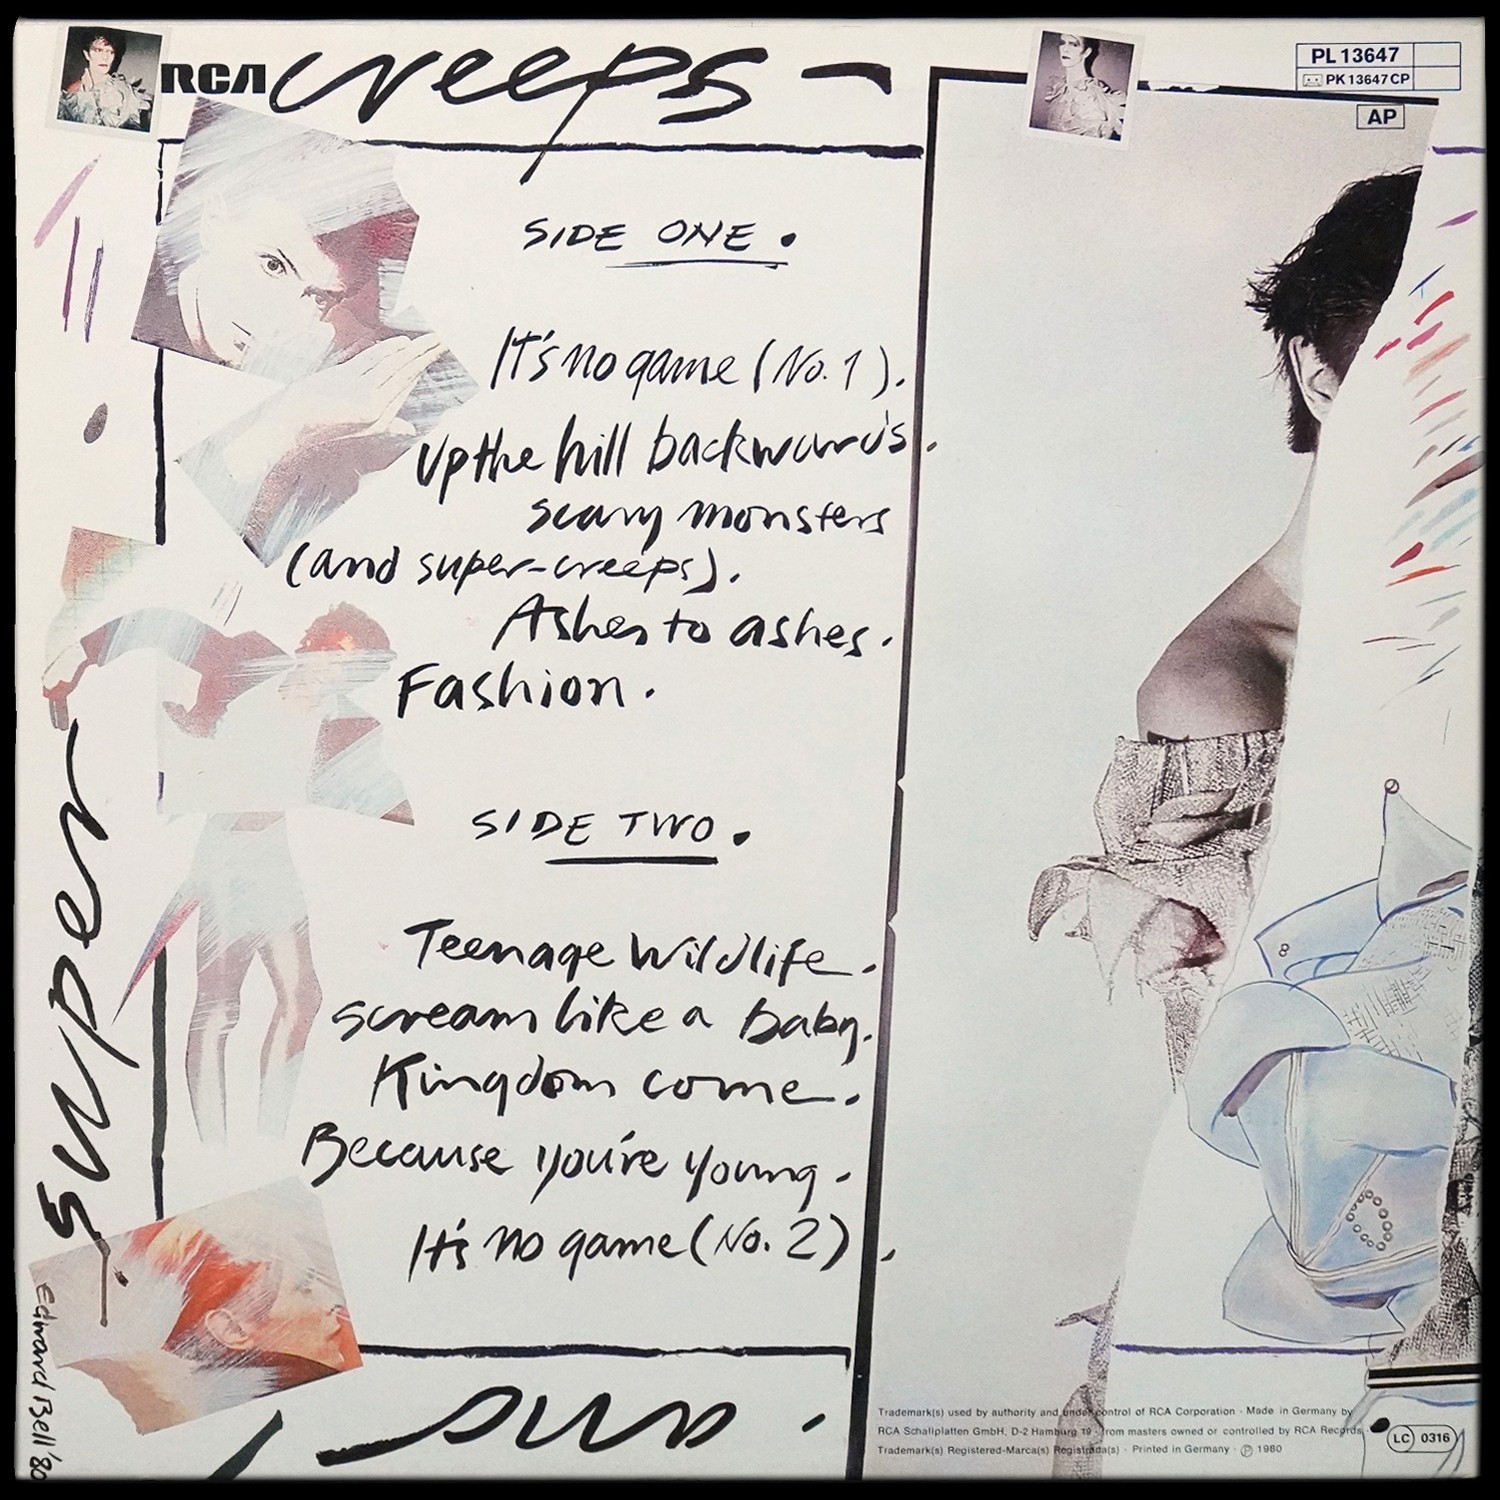 RCA creeps -
PL 13647
PK 13647 CP
AP
SIDE ONE.
It's no game (No. 1).
Up the hill backwards.
scary monsters
(and super-creeps).
Ashes to ashes.
Fashion.
SIDE TWO.
Teenage wildlife.
scream like a baby.
Kingdom come.
Because you're young.
It's no game (No. 2).
super
Edward Bell '80
Trademark(s) used by authority and under control of RCA Corporation · Made in Germany by
RCA Schallplatten GmbH, D-2 Hamburg 19 · from masters owned or controlled by RCA Records.
Trademark(s) Registered-Marca(s) Registrada(s) · Printed in Germany · Ⓟ 1980
LC 0316